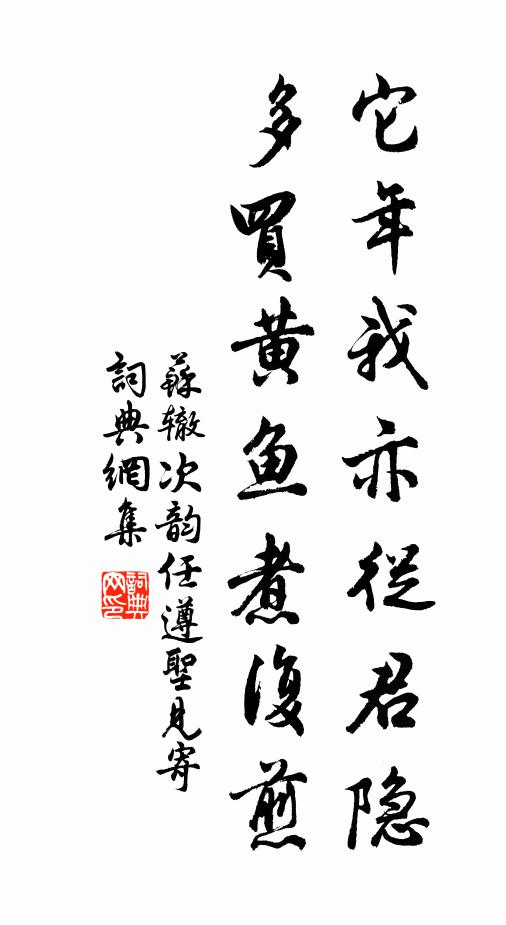 它年我亦從君隐
多買黄鱼煮復煎
蘇辙次韵任遵聖見寄
詞典網集
詞典网印